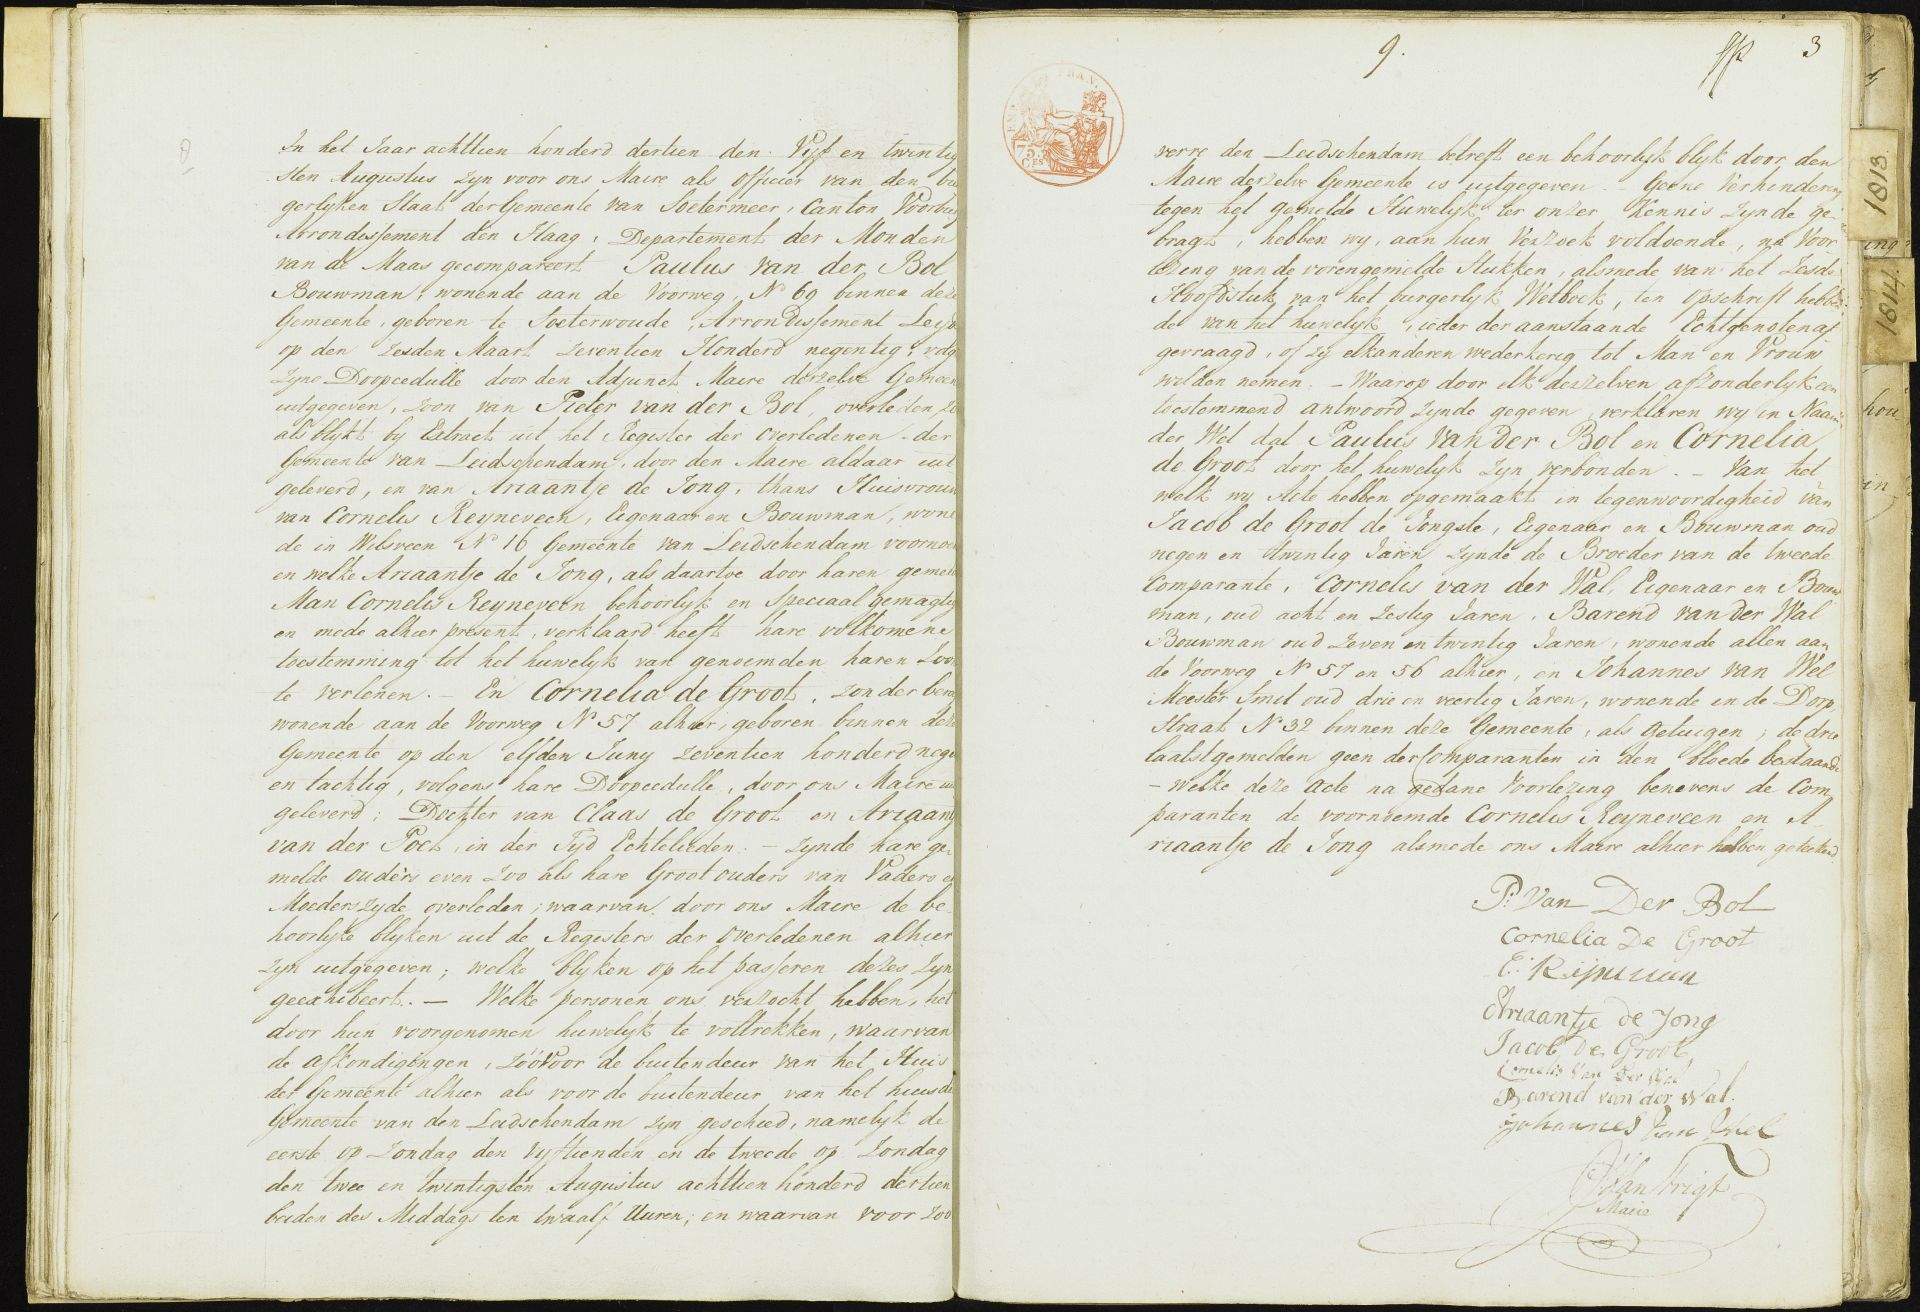 In het Jaar achttien honderd dertien den Vyf en twintig
sten Augustus zyn voor ons Maire als officier van den bur
gerlyken Staat der Gemeente van Soetermeer, Canton Voorburg
Arrondissement den Haag, Departement der Monden
van de Maas gecompareert Paulus van der Bol
Bouwman, wonende aan de Voorweg N 69 binnen deze
Gemeente, geboren te Soeterwoude, Arrondissement Leyd
op den zesden Maart zeventien Honderd negentig, volg
zyne Doopcedulle door den Adjunct Maire derzelve Gemeen
uitgegeven, zoon van Pieter van der Bol, overleden, zo
als blykt by Extract uit het Register der overledenen der
Gemeente van Leidschendam, door den Maire aldaar uit
geleverd, en van Ariaantje de Jong, thans Huisvrouw
van Cornelis Reyneveen, Eigenaar en Bouwman, wone
de in Wilsveen N 16 Gemeente van Leidschendam voornoe
en welke Ariaantje de Jong, als daartoe door haren gemel
Man Cornelis Reyneveen behoorlyk en Speciaal gemagtig
en mede alhier present, verklaard heeft hare volkomene
toestemming tot het huwelyk van genoemden haren Zoon
te verlenen. – En Cornelia de Groot, zonder beroe
wonende aan de Voorweg N 57 alhier, geboren binnen deze
Gemeente op den elfden Juny zeventien honderd nege
en tachtig, volgens hare Doopcedulle, door ons Maire uit
geleverd; Dochter van Claas de Groot en Ariaantj
van der Poel, in der Tyd Echtelieden. – zynde hare ge-
melde ouders even zoo als hare Grootouders van Vaders en
Moeders zyde overleden; waarvan door ons Maire de be
hoorlyke blyken uit de Registers der overledenen alhier
zyn uitgegeven; welke blyken op het passeren dezes zyn
geexhibeert. – Welke personen ons verzocht hebben, het
door hun voorgenomen huwelyk te voltrekken, waarvan
de afkondigingen, zóó voor de buitendeur van het Huis
der Gemeente alhier als voor de buitendeur van het huis de
Gemeente van den Leidschendam zyn geschied, namelyk de
eerste op Zondag den vyftienden en de tweede op Zondag
den twee en twintigsten Augustus achttien honderd dertien
beiden des Middags ten twaalf Uuren; en waarvan voor zoo
9.
3
75
CES
verre den Leidschendam betreft een behoorlyk blyk door den
Maire derzelve Gemeente is uitgegeven. – Geene Verhindering
tegen het gemelde Huwelyk ter onzer Kennis zynde ge-
bragt, hebben wy, aan hun Verzoek voldoende, na Voor
lezing van de vorengemelde Stukken, alsmede van het Zesde
Hoofdstuk van het burgerlyk Wetboek, ten opschrift hebben
de van het huwelyk, ieder der aanstaande Echtgenoten af
gevraagd, of zy elkanderen wederkerig tot Man en Vrouw
wilden nemen. – Waarop door elk derzelven afzonderlyk een
toestemmend antwoord zynde gegeven, verklaren wy in Naam
der Wet dat Paulus van der Bol en Cornelia
de Groot door het huwelyk zyn verbonden. – Van het
welk wy Acte hebben opgemaakt in tegenwoordigheid van
Jacob de Groot de Jongste, Eigenaar en Bouwman oud
negen en twintig Jaren zynde de Broeder van de tweede
Comparante, Cornelis van der Wal, Eigenaar en Bouw
man, oud acht en zestig Jaren, Barend van der Wal
Bouwman oud Zeven en twintig Jaren, wonende allen aan
de Voorweg N 57 en 56 alhier, en Johannes van Wel
Meester Smit oud drie en veertig Jaren, wonende in de Dorp
Straat N 32 binnen deze Gemeente, als getuigen; de drie
laatstgemelden geen der Comparanten in den bloede bestaande
– welke deze acte na gedane Voorlezing benevens de Com
paranten de voornoemde Cornelis Reyneveen en A-
riaantje de Jong alsmede ons Maire alhier hebben getekend
P: Van Der Bol
Cornelia De Groot
Ariaantje de Jong
Jacob De Groot
Cornelis Van Der Wal
Barend van der Wal.
Johannes Van Wel
Maire
1813.
1814.